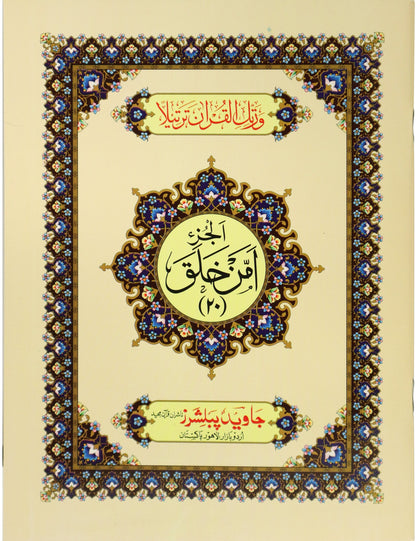 ورتل القرآن ترتيلا
الجزء
امن خلق
(۲۰)
جاوید پبلشرز ناشران قرآن مجید
اردو بازار لاہور پاکستان